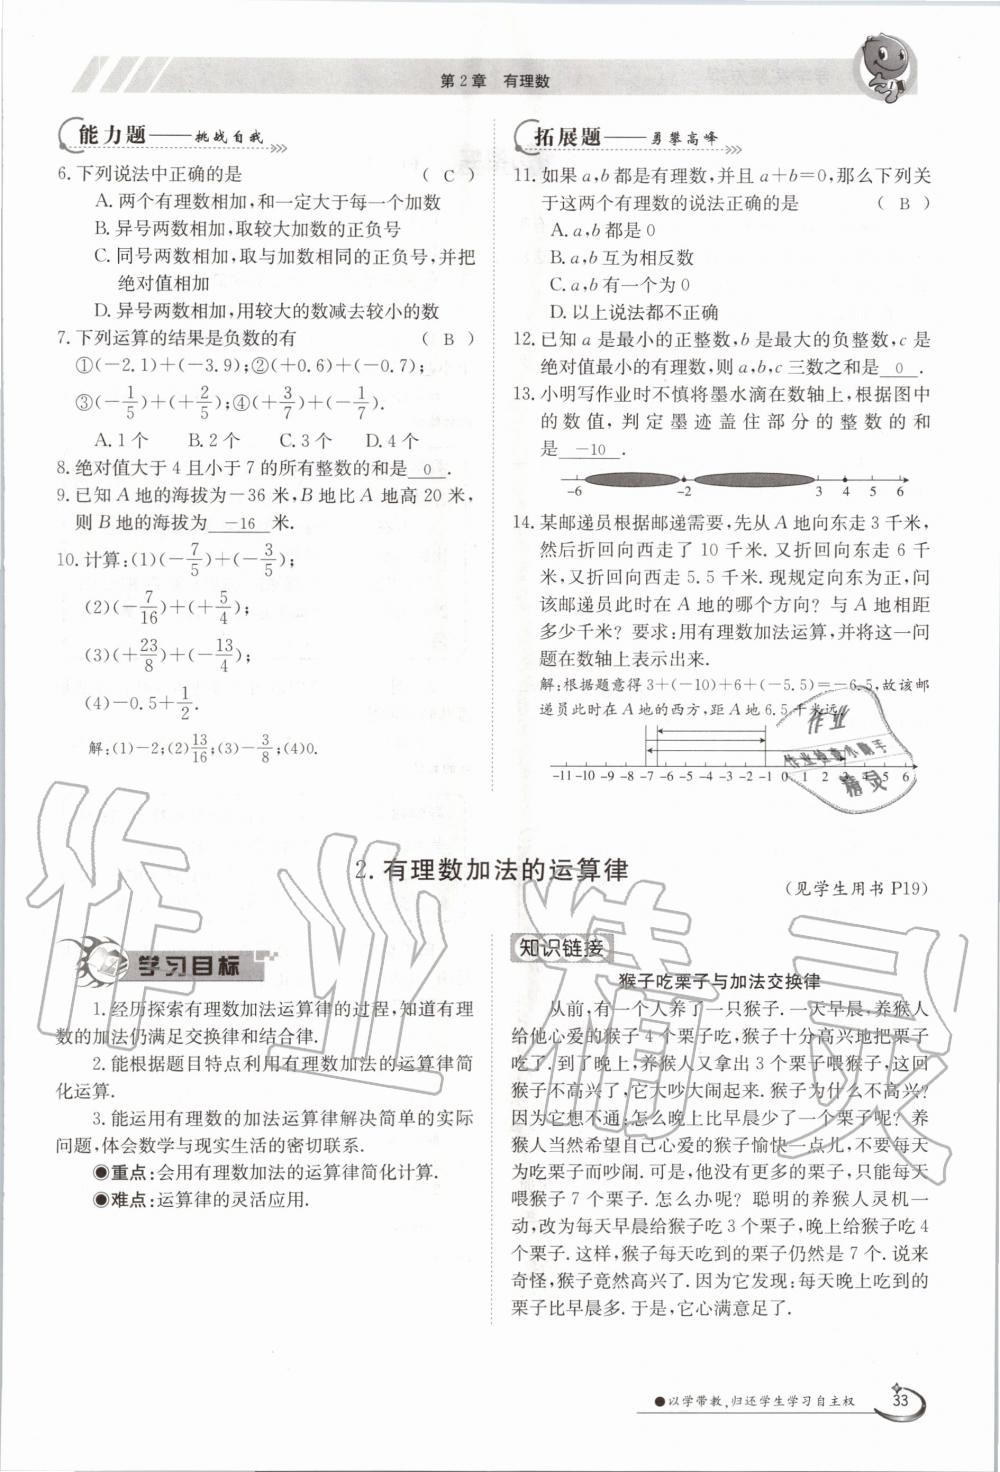 第2章 有理数
能力题——挑战自我
6.下列说法中正确的是 ( C )
A.两个有理数相加,和一定大于每一个加数
B.异号两数相加,取较大加数的正负号
C.同号两数相加,取与加数相同的正负号,并把
绝对值相加
D.异号两数相加,用较大的数减去较小的数
7.下列运算的结果是负数的有 ( B )
①(-2.1)+(-3.9);②(+0.6)+(-0.7);
③(-1/5)+(+2/5);④(+3/7)+(-1/7).
A.1个 B.2个 C.3个 D.4个
8.绝对值大于4且小于7的所有整数的和是 0 .
9.已知A地的海拔为-36米,B地比A地高20米,
则B地的海拔为 -16 米.
10.计算:(1)(-7/5)+(-3/5);
(2)(-7/16)+(+5/4);
(3)(+23/8)+(-13/4);
(4)-0.5+1/2.
解:(1)-2;(2)13/16;(3)-3/8;(4)0.
拓展题——勇攀高峰
11.如果a,b都是有理数,并且a+b=0,那么下列关
于这两个有理数的说法正确的是 ( B )
A.a,b都是0
B.a,b互为相反数
C.a,b有一个为0
D.以上说法都不正确
12.已知a是最小的正整数,b是最大的负整数,c是
绝对值最小的有理数,则a,b,c三数之和是 0 .
13.小明写作业时不慎将墨水滴在数轴上,根据图中
的数值,判定墨迹盖住部分的整数的和
是 -10 .
-6 -2 3 4 5 6
14.某邮递员根据邮递需要,先从A地向东走3千米,
然后折回向西走了10千米.又折回向东走6千
米,又折回向西走5.5千米.现规定向东为正,问
该邮递员此时在A地的哪个方向?与A地相距
多少千米?要求:用有理数加法运算,并将这一问
题在数轴上表示出来.
解:根据题意得3+(-10)+6+(-5.5)=-6.5,故该邮
递员此时在A地的西方,距A地6.5千米远.
-11 -10 -9 -8 -7 -6 -5 -4 -3 -2 -1 0 1 2 3 4 5 6
作业
作业检查小助手
精灵
2.有理数加法的运算律
(见学生用书P19)
学习目标
1.经历探索有理数加法运算律的过程,知道有理
数的加法仍满足交换律和结合律.
2.能根据题目特点利用有理数加法的运算律简
化运算.
3.能运用有理数的加法运算律解决简单的实际
问题,体会数学与现实生活的密切联系.
●重点:会用有理数加法的运算律简化计算.
●难点:运算律的灵活应用.
知识链接
猴子吃栗子与加法交换律
从前,有一个人养了一只猴子.一天早晨,养猴人
给他心爱的猴子4个栗子吃,猴子十分高兴地把栗子
吃了.到了晚上,养猴人又拿出3个栗子喂猴子,这回
猴子不高兴了,它大吵大闹起来.猴子为什么不高兴?
因为它想不通:怎么晚上比早晨少了一个栗子呢?养
猴人当然希望自己心爱的猴子愉快一点儿,不要每天
为吃栗子而吵闹.可是,他没有更多的栗子,只能每天
喂猴子7个栗子.怎么办呢?聪明的养猴人灵机一
动,改为每天早晨给猴子吃3个栗子,晚上给猴子吃4
个栗子.这样,猴子每天吃到的栗子仍然是7个.说来
奇怪,猴子竟然高兴了.因为它发现:每天晚上吃到的
栗子比早晨多.于是,它心满意足了.
作业精灵
●以学带教,归还学生学习自主权 33